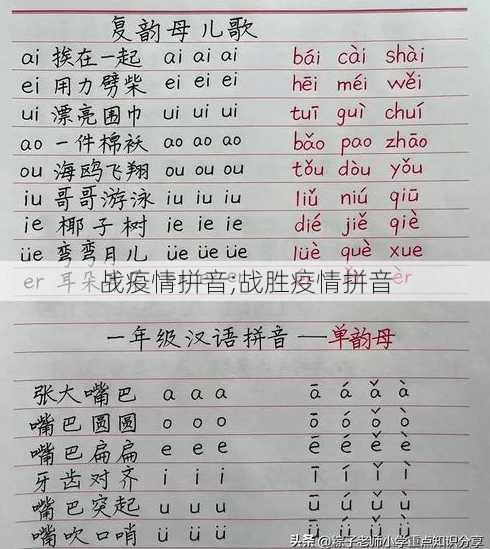 复韵母儿歌
ai 挨在一起 ai ai ai bái cài shài
ei 用力劈柴 ei ei ei hēi méi wěi
ui 漂亮围巾 ui ui ui tuī guì chuí
ao 一件棉袄 ao ao ao bǎo pao zhāo
ou 海鸥飞翔 ou ou ou tǒu dòu yǒu
iu 哥哥游泳 iu iu iu liǔ niú qiū
ie 椰子树 ie ie ie dié jiě qiè
üe 弯弯月儿 üe üe üe lüè què xue
er 耳朵
战疫情拼音,战胜疫情拼音
一年级汉语拼音——单韵母
张大嘴巴 a a a ā á ǎ à
嘴巴圆圆 o o o ō ó ǒ ò
嘴巴扁扁 e e e ē é ě è
牙齿对齐 i i i ī í ǐ ì
嘴巴突起 u u u ū ú ǔ ù
嘴吹口哨 ü ü ü ǖ ǘ ǚ ǜ
头条 @棕子老师小学重点知识分享